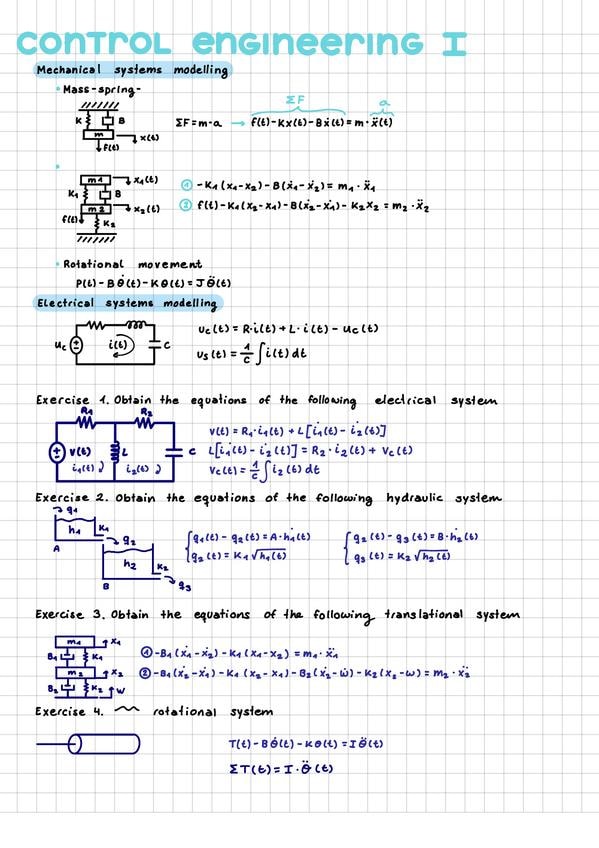 Control engineering I
Mechanical systems modelling
• Mass-spring-
K B m x(t) f(t)
ΣF a
ΣF = m·a → f(t) - Kx(t) - Bẋ(t) = m·ẍ(t)
•
m1 x₁(t)
K₁ B
m2 x₂(t)
f(t) K₂
① -K₁(x₁-x₂) - B(ẋ₁-ẋ₂) = m₁·ẍ₁
② f(t) - K₁(x₂-x₁) - B(ẋ₂-ẋ₁) - K₂x₂ = m₂·ẍ₂
• Rotational movement
P(t) - Bθ̇(t) - Kθ(t) = Jθ̈(t)
Electrical systems modelling
uc i(t) C
uc(t) = R·i(t) + L·i(t) - uc(t)
us(t) = 1/C ∫i(t)dt
Exercise 1. Obtain the equations of the following electrical system
R₁ R₂
v(t) L C
i₁(t) i₂(t)
v(t) = R₁·i₁(t) + L[i̇₁(t) - i̇₂(t)]
L[i̇₁(t) - i̇₂(t)] = R₂·i₂(t) + Vc(t)
Vc(t) = 1/C ∫i₂(t)dt
Exercise 2. Obtain the equations of the following hydraulic system
q1
h₁ K1
A q2
h₂ K2
B q3
q₁(t) - q₂(t) = A·ḣ₁(t)
q₂(t) = K₁√h₁(t)
q₂(t) - q₃(t) = B·ḣ₂(t)
q₃(t) = K₂√h₂(t)
Exercise 3. Obtain the equations of the following translational system
m₁ x₁
B₁ K₁
m₂ x₂
B₂ K₂ w
① -B₁(ẋ₁-ẋ₂) - K₁(x₁-x₂) = m₁·ẍ₁
② -B₁(ẋ₂-ẋ₁) - K₁(x₂-x₁) - B₂(ẋ₂-ẇ) - K₂(x₂-w) = m₂·ẍ₂
Exercise 4. rotational system
T(t) - Bθ̇(t) - Kθ(t) = Iθ̈(t)
ΣT(t) = I·θ̈(t)